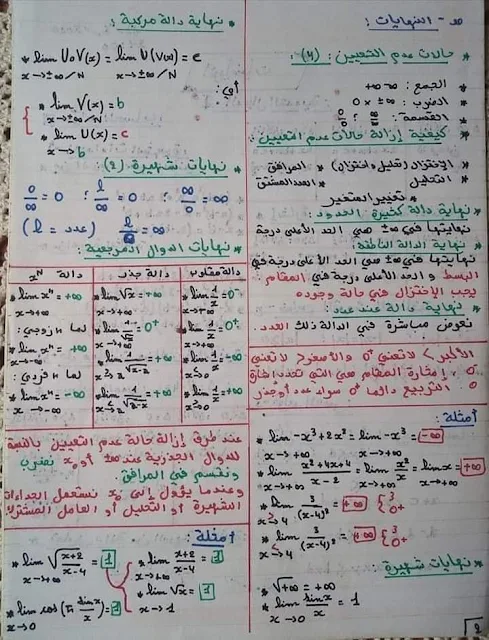 د - النهايات :
* حالات عدم التعيين : (4)
* الجمع : +∞ -∞
* الضرب : 0 × ±∞
* القسمة : ∞/∞ ؛ 0/0
* كيفية إزالة حالات عدم التعيين :
* الإختزال (تحليل واختزال) * المرافق
* التحليل * العدد المشتق
* تغيير المتغير
* نهاية دالة كثيرة الحدود :
نهايتها في ±∞ هي الحد الأعلى درجة
* نهاية الدالة الناطقة :
نهايتها في ±∞ هي الحد الأعلى درجة في
البسط و الحد الأعلى درجة في المقام
يجب الإختزال في حالة وجوده
* نهاية دالة عند عدد :
نعوض مباشرة في الدالة ذلك العدد
الأكبر > لا تعني 0+ والأصغر < لا تعني
0-، إشارة المقام هي التي تحدد إشارة
0، التربيع دائما 0+ سواء عدد أو جذر
أمثلة :
* lim -x³+2x² = lim -x³ = -∞
x→+∞ x→+∞
* lim x²+4x+4 / x-2 = lim x²/x = lim x = +∞
x→+∞ x→+∞ x→+∞
* lim 3/(x-4)² = +∞ { 3 0+
x→4
* lim 3/(x-4)² = +∞ { 3 0+
x→4
* نهايات شهيرة :
* √+∞ = +∞
* lim sinx/x = 1
x→0
* نهاية دالة مركبة :
* lim UoV(x) = lim U(V(x)) = c
x→±∞/N x→±∞/N
أي :
* lim V(x) = b
x→±∞/N
* lim U(x) = c
x→b
* نهايات شهيرة (2)
0/∞ = 0 ؛ l/∞ = 0 ؛ ∞/0 = ∞
(l = عدد) l/0 = ∞
* نهايات الدوال المرجعية :
دالة مقلوب
* lim 1/x = 0-
x→-∞
* lim 1/x = 0+
x→+∞
* lim 1/x = -∞
x→0
* lim 1/x = +∞
x→0
دالة جذر
* lim √x = +∞
x→+∞
* lim 1/√x = 0+
x→+∞
* lim 1/√x-2 = +∞
x→2
* lim 1/√2-x = +∞
x→2
دالة xⁿ
* lim xⁿ = +∞
x→+∞
لما n زوجي :
* lim xⁿ = +∞
x→-∞
لما n فردي :
* lim xⁿ = -∞
x→-∞
عند طرق إزالة حالة عدم التعيين بالنسبة
للدوال الجذرية عند ±∞ أو x₀ نضرب
ونقسم في المرافق
وعندما يؤول إلى x₀ نستعمل الجداءات
الشهيرة أو التحليل أو العامل المشترك
* أمثلة :
* lim √(x+2/x-4) = 1
x→+∞
* lim x+2/x-4 = 1
x→+∞
* lim √x = 1
x→1
* lim cos(π·sinx/x) = 1
x→0